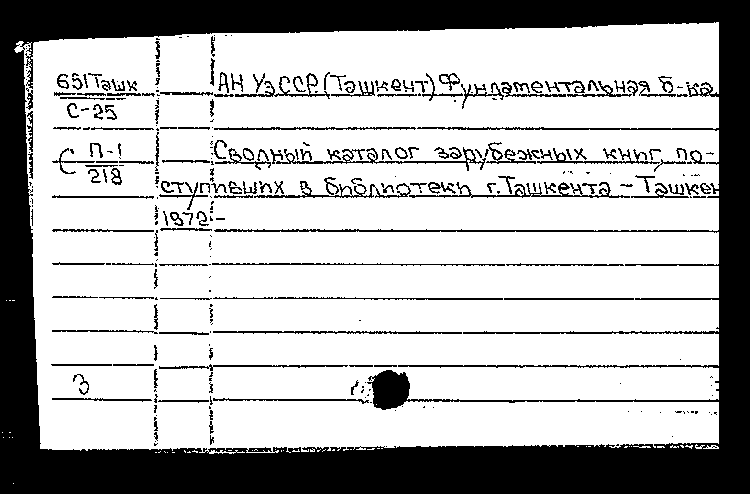 651Ташк АН УзССР.(Ташкент) Фундаментальная б-ка.
С-25
С П-1 Сводный каталог зарубежных книг, по-
218
ступивших в библиотеки г.Ташкента - Ташкен
1972 -
3